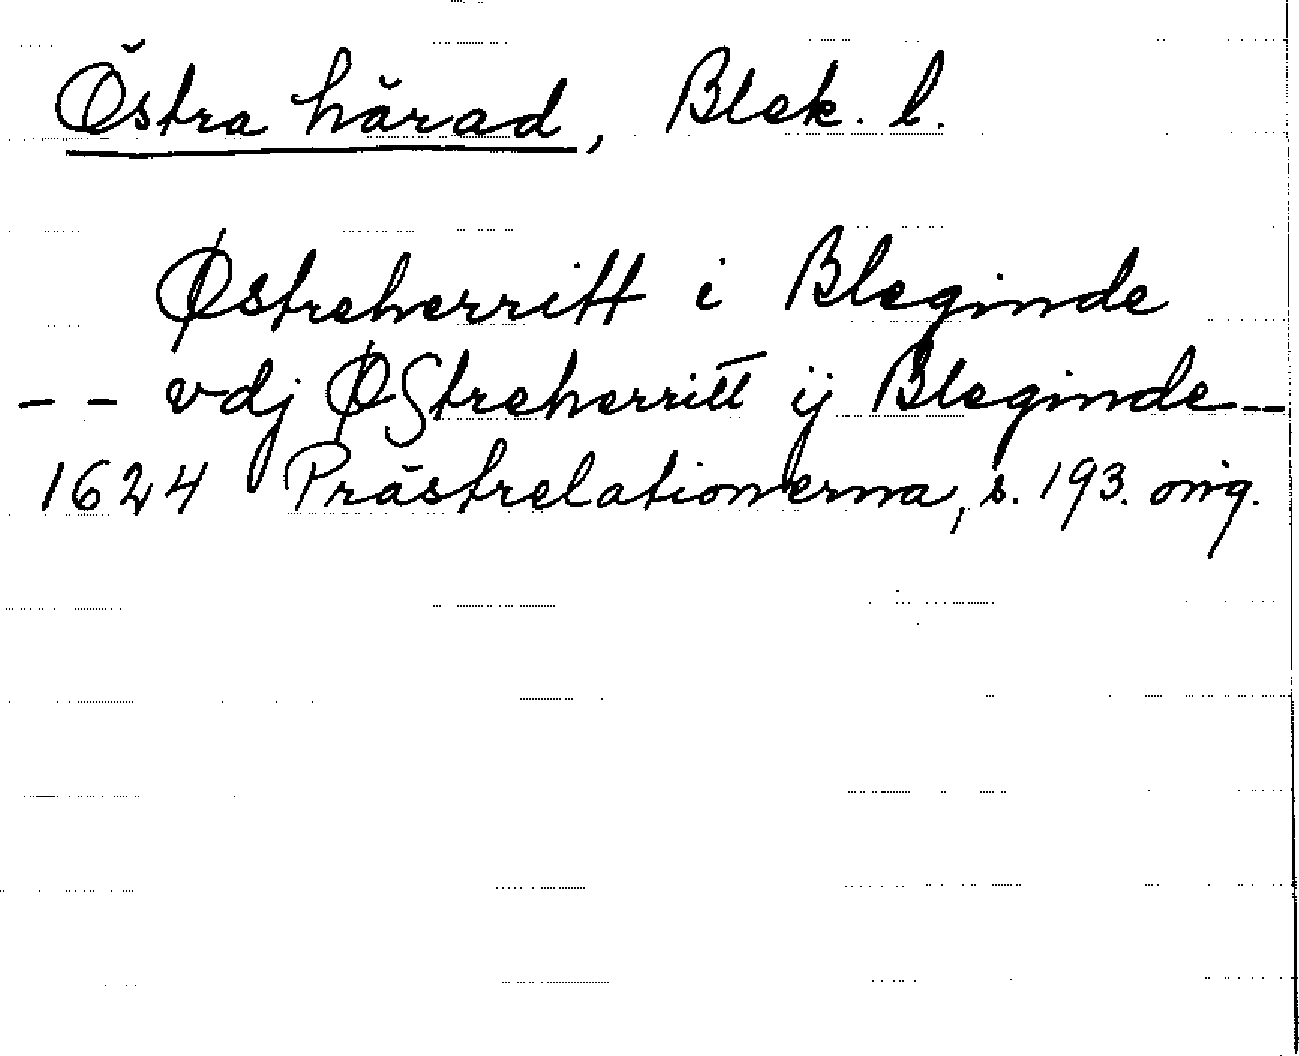 Östra härad, Blek. l.
Østreherritt i Bleginde
-- vdj ØStreherritt ij Bleginde --
1624 Prästrelationerna, s. 193. orig.